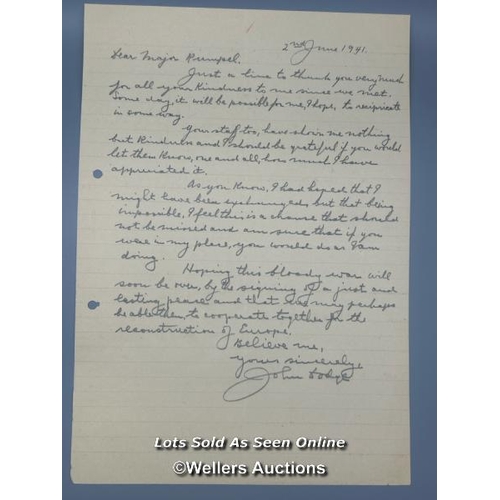 2nd June 1941.
Dear Major Rumpel.
Just a line to thank you very much
for all your kindness to me since we met.
Some day, it will be possible for me, I hope, to reciprocate
in some way.
Your staff too, have shown me nothing
but kindness and I should be grateful if you would
let them know, one and all, how much I have
appreciated it.
As you know, I had hoped that I
might have been exchanged, but that being
impossible, I feel this is a chance that should
not be missed and am sure that if you
were in my place, you would do as I am
doing.
Hoping this bloody war will
soon be over, by the signing of a just and
lasting peace and that we may perhaps
be able then, to cooperate together for the
reconstruction of Europe.
Believe me,
Yours sincerely,
John Dodge
Lots Sold As Seen Online
©Wellers Auctions